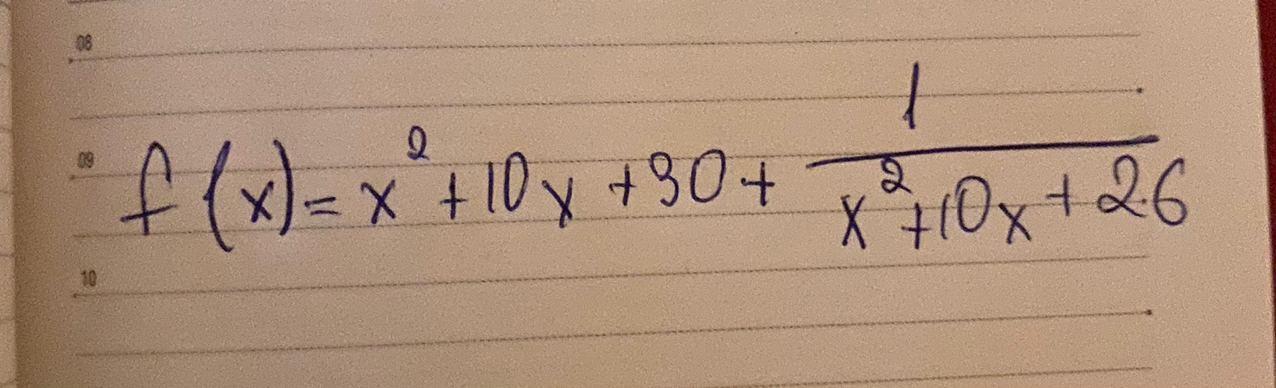 08
09
f(x) = x² + 10x + 30 + 1/(x² + 10x + 26)
10